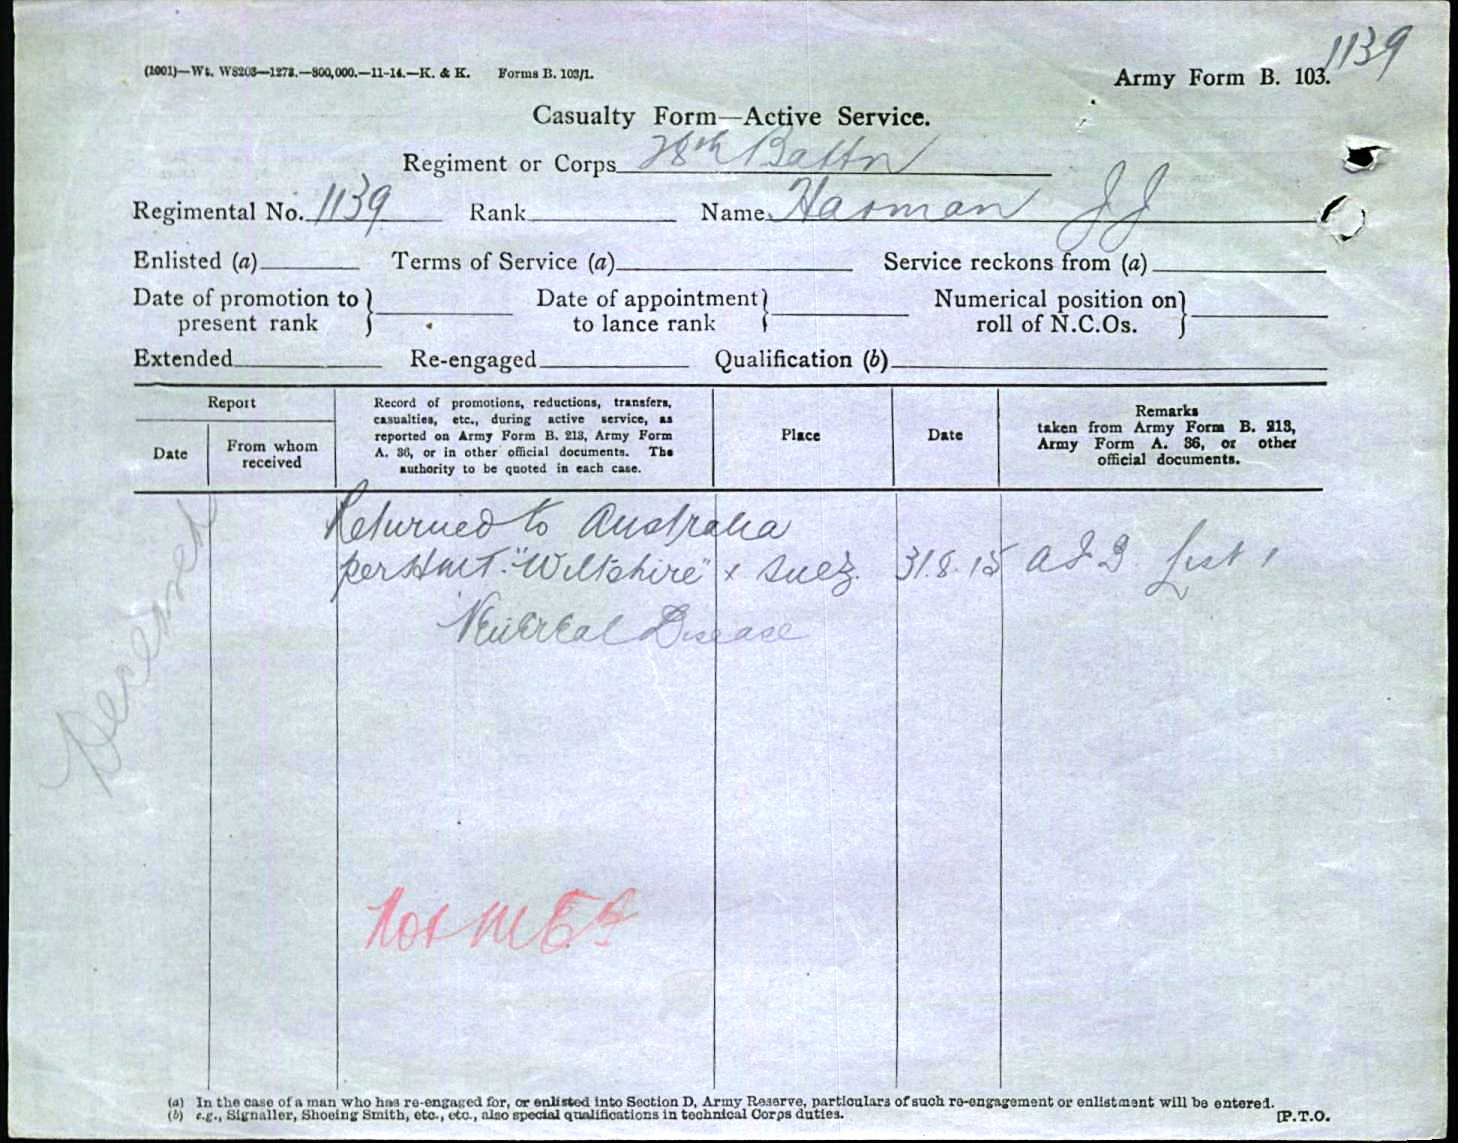 1139
(1001)—Wt. W8203—1273.—800,000.—11-14.—K. & K. Forms B. 103/1.
Army Form B. 103.
Casualty Form—Active Service.
Regiment or Corps 28th Battn
Regimental No. 1139 Rank Name Harman J J
Enlisted (a) Terms of Service (a) Service reckons from (a)
Date of promotion to present rank } Date of appointment to lance rank } Numerical position on roll of N.C.Os. }
Extended Re-engaged Qualification (b)
Report
Date
From whom received
Record of promotions, reductions, transfers,
casualties, etc., during active service, as
reported on Army Form B. 213, Army Form
A. 36, or in other official documents. The
authority to be quoted in each case.
Place
Date
Remarks
taken from Army Form B. 213,
Army Form A. 36, or other
official documents.
Returned to Australia
per HMT. "Wiltshire" x Suez. 31.8.15 List 1
Venereal Disease
Not MEF
(a) In the case of a man who has re-engaged for, or enlisted into Section D, Army Reserve, particulars of such re-engagement or enlistment will be entered.
(b) e.g., Signaller, Shoeing Smith, etc., etc., also special qualifications in technical Corps duties.
[P.T.O.